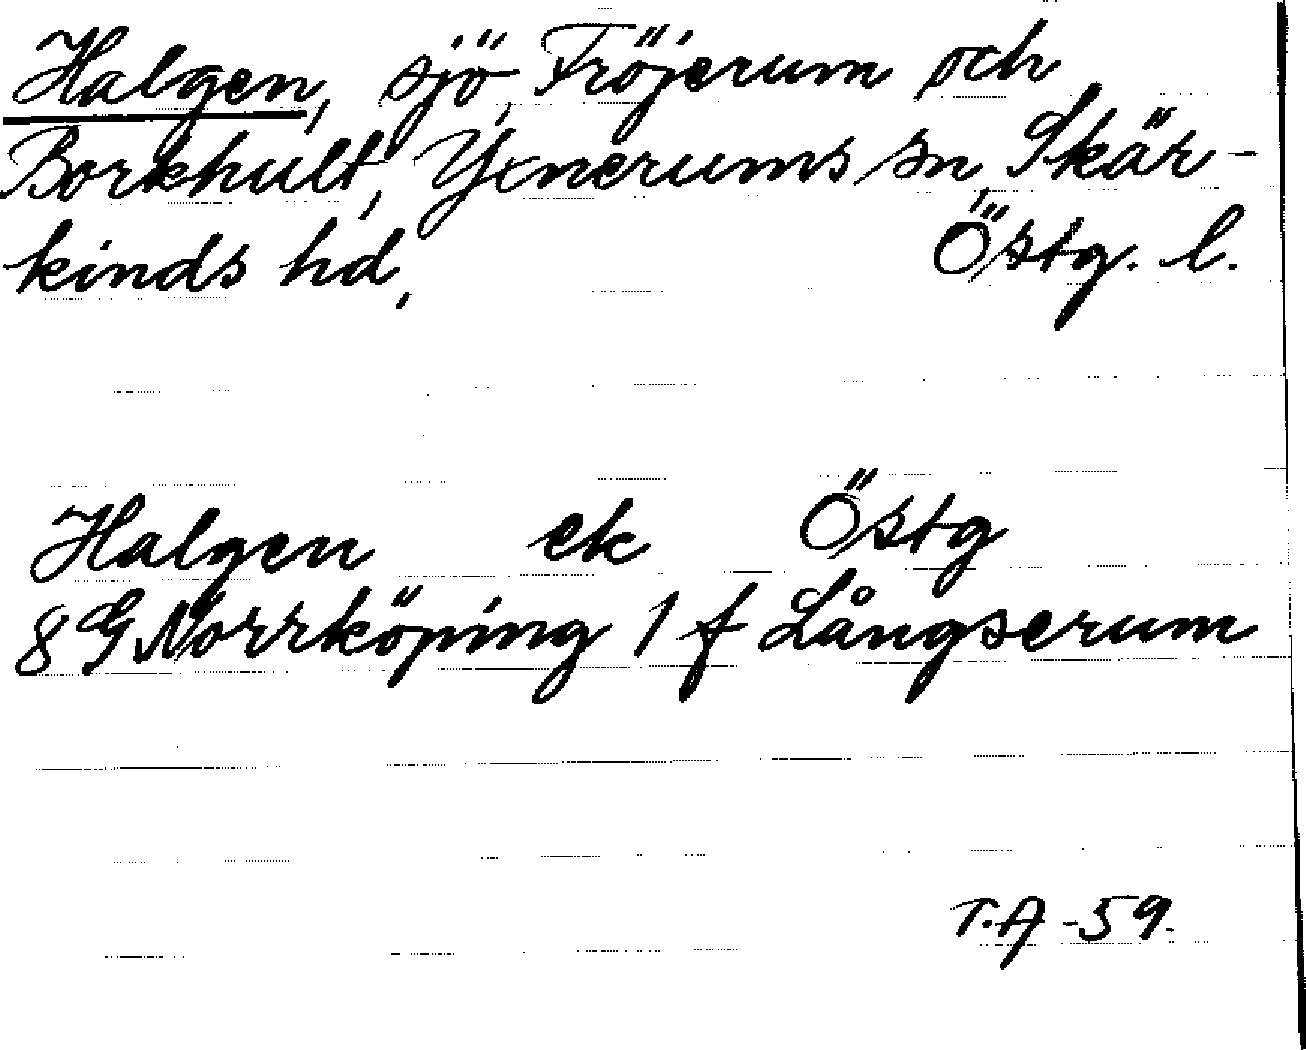 Halgen, sjö, Fröjerum och
Borkhult, Yxnerums sn, Skär-
kinds hd, Östg. l.
Halgen ek Östg
8 G Norrköping 1 f Långserum
T.A -59.